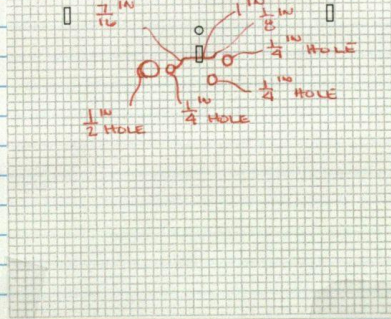 7/16 IN
1 IN
1/8 IN
1/4 IN HOLE
1/4 IN HOLE
1/4 IN HOLE
1/2 IN HOLE